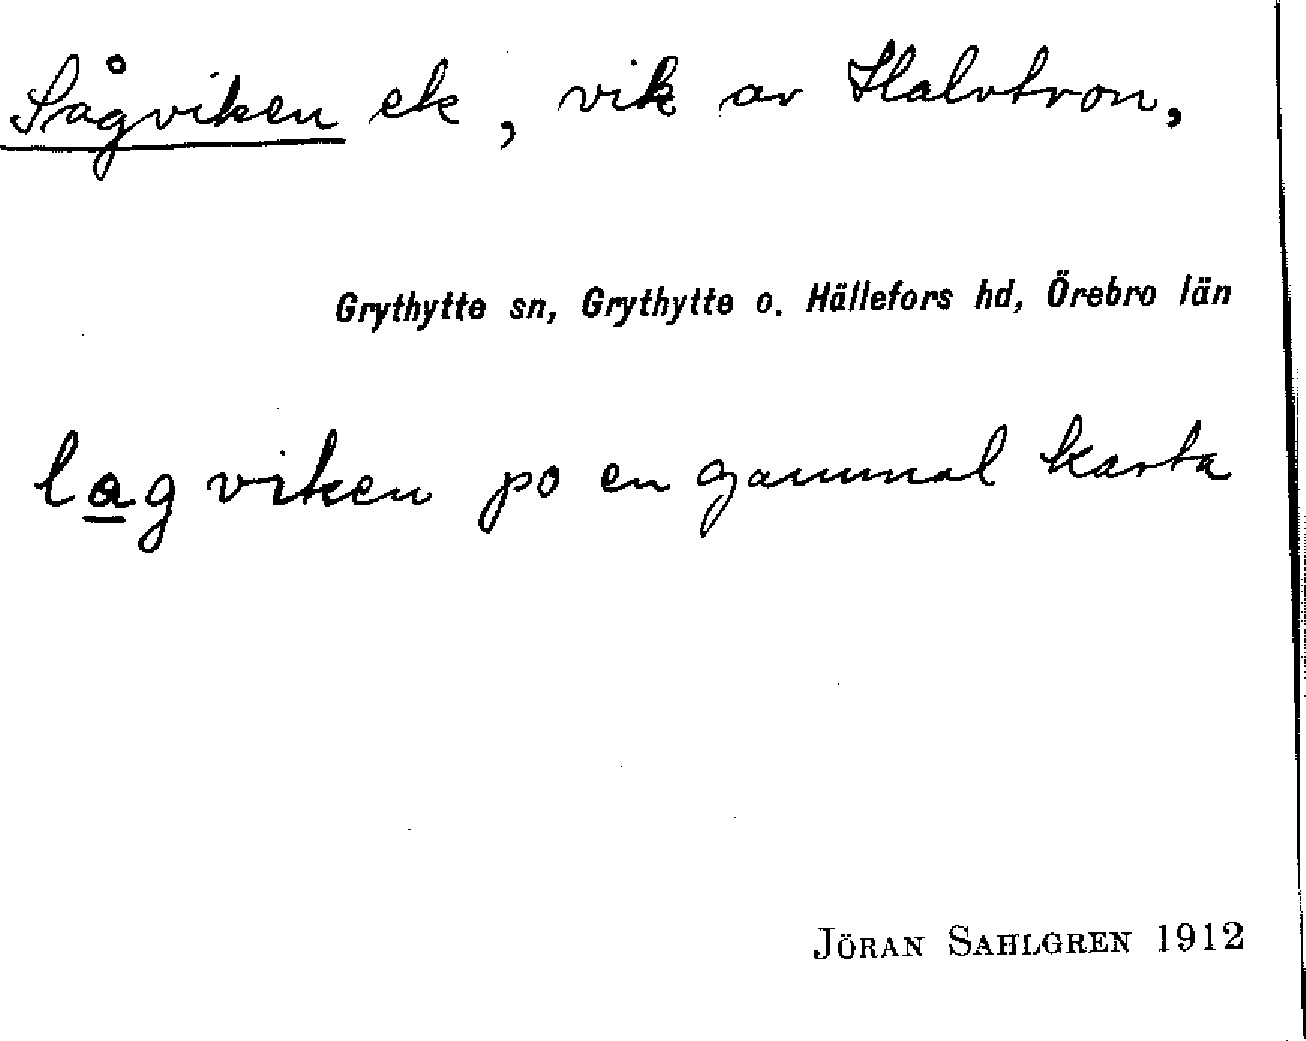 Sågviken ek, vik av Halvtron,
Grythytte sn, Grythytte o. Hällefors hd, Örebro län
lagviken po en gammal karta
JÖRAN SAHLGREN 1912